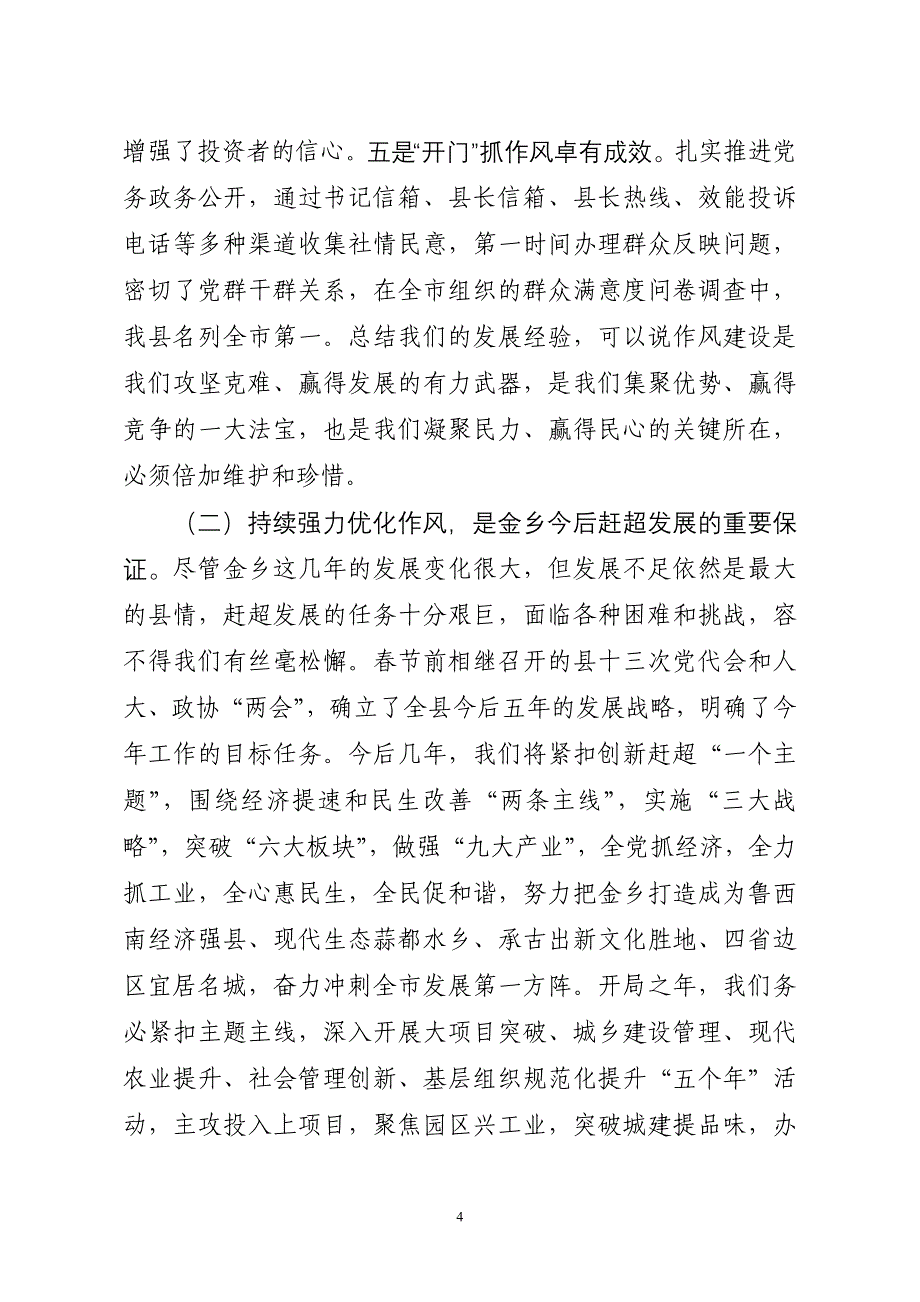 增强了投资者的信心。五是“开门”抓作风卓有成效。扎实推进党
务政务公开，通过书记信箱、县长信箱、县长热线、效能投诉
电话等多种渠道收集社情民意，第一时间办理群众反映问题，
密切了党群干群关系，在全市组织的群众满意度问卷调查中，
我县名列全市第一。总结我们的发展经验，可以说作风建设是
我们攻坚克难、赢得发展的有力武器，是我们集聚优势、赢得
竞争的一大法宝，也是我们凝聚民力、赢得民心的关键所在，
必须倍加维护和珍惜。
（二）持续强力优化作风，是金乡今后赶超发展的重要保
证。尽管金乡这几年的发展变化很大，但发展不足依然是最大
的县情，赶超发展的任务十分艰巨，面临各种困难和挑战，容
不得我们有丝毫松懈。春节前相继召开的县十三次党代会和人
大、政协“两会”，确立了全县今后五年的发展战略，明确了今
年工作的目标任务。今后几年，我们将紧扣创新赶超“一个主
题”，围绕经济提速和民生改善“两条主线”，实施“三大战
略”，突破“六大板块”，做强“九大产业”，全党抓经济，全力
抓工业，全心惠民生，全民促和谐，努力把金乡打造成为鲁西
南经济强县、现代生态蒜都水乡、承古出新文化胜地、四省边
区宜居名城，奋力冲刺全市发展第一方阵。开局之年，我们务
必紧扣主题主线，深入开展大项目突破、城乡建设管理、现代
农业提升、社会管理创新、基层组织规范化提升“五个年”活
动，主攻投入上项目，聚焦园区兴工业，突破城建提品味，办
4